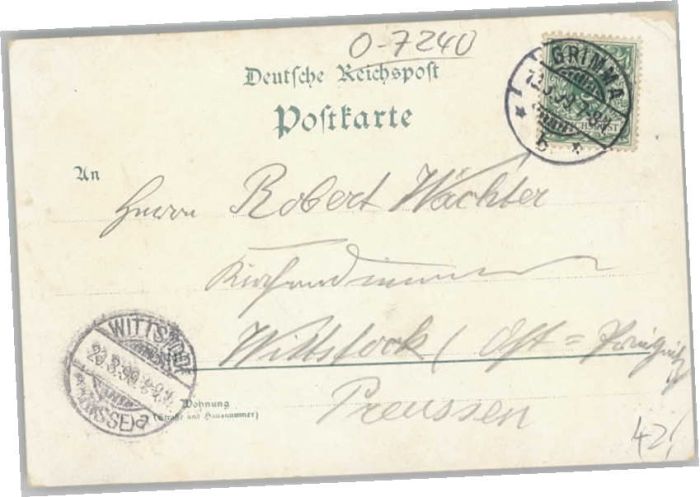 O-7240
Deutsche Reichspost
Postkarte
GRIMMA
b
An
Herrn Robert Wächter
Wittstock (Ost=Prignitz
Preussen
WITTSTOCK
(DOSSE) a
Wohnung
(Straße und Hausnummer)
42,